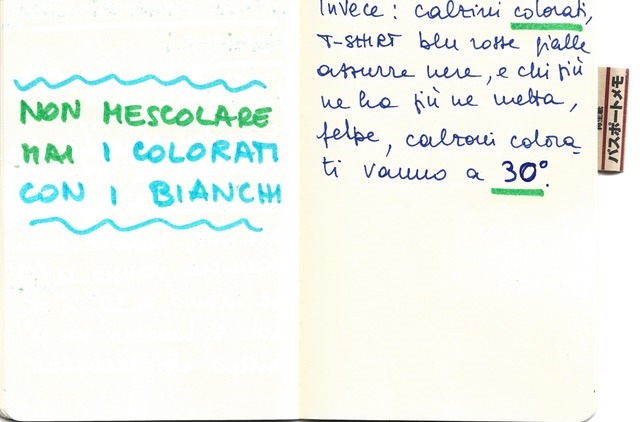 NON MESCOLARE
MAI I COLORATI
CON I BIANCHI
Invece : calzini colorati,
T-SHIRT blu rosse gialle
azzurre nere, e chi più
ne ha più ne metta,
felpe, calzoni colora-
ti vanno a 30°.
パスポートメモ